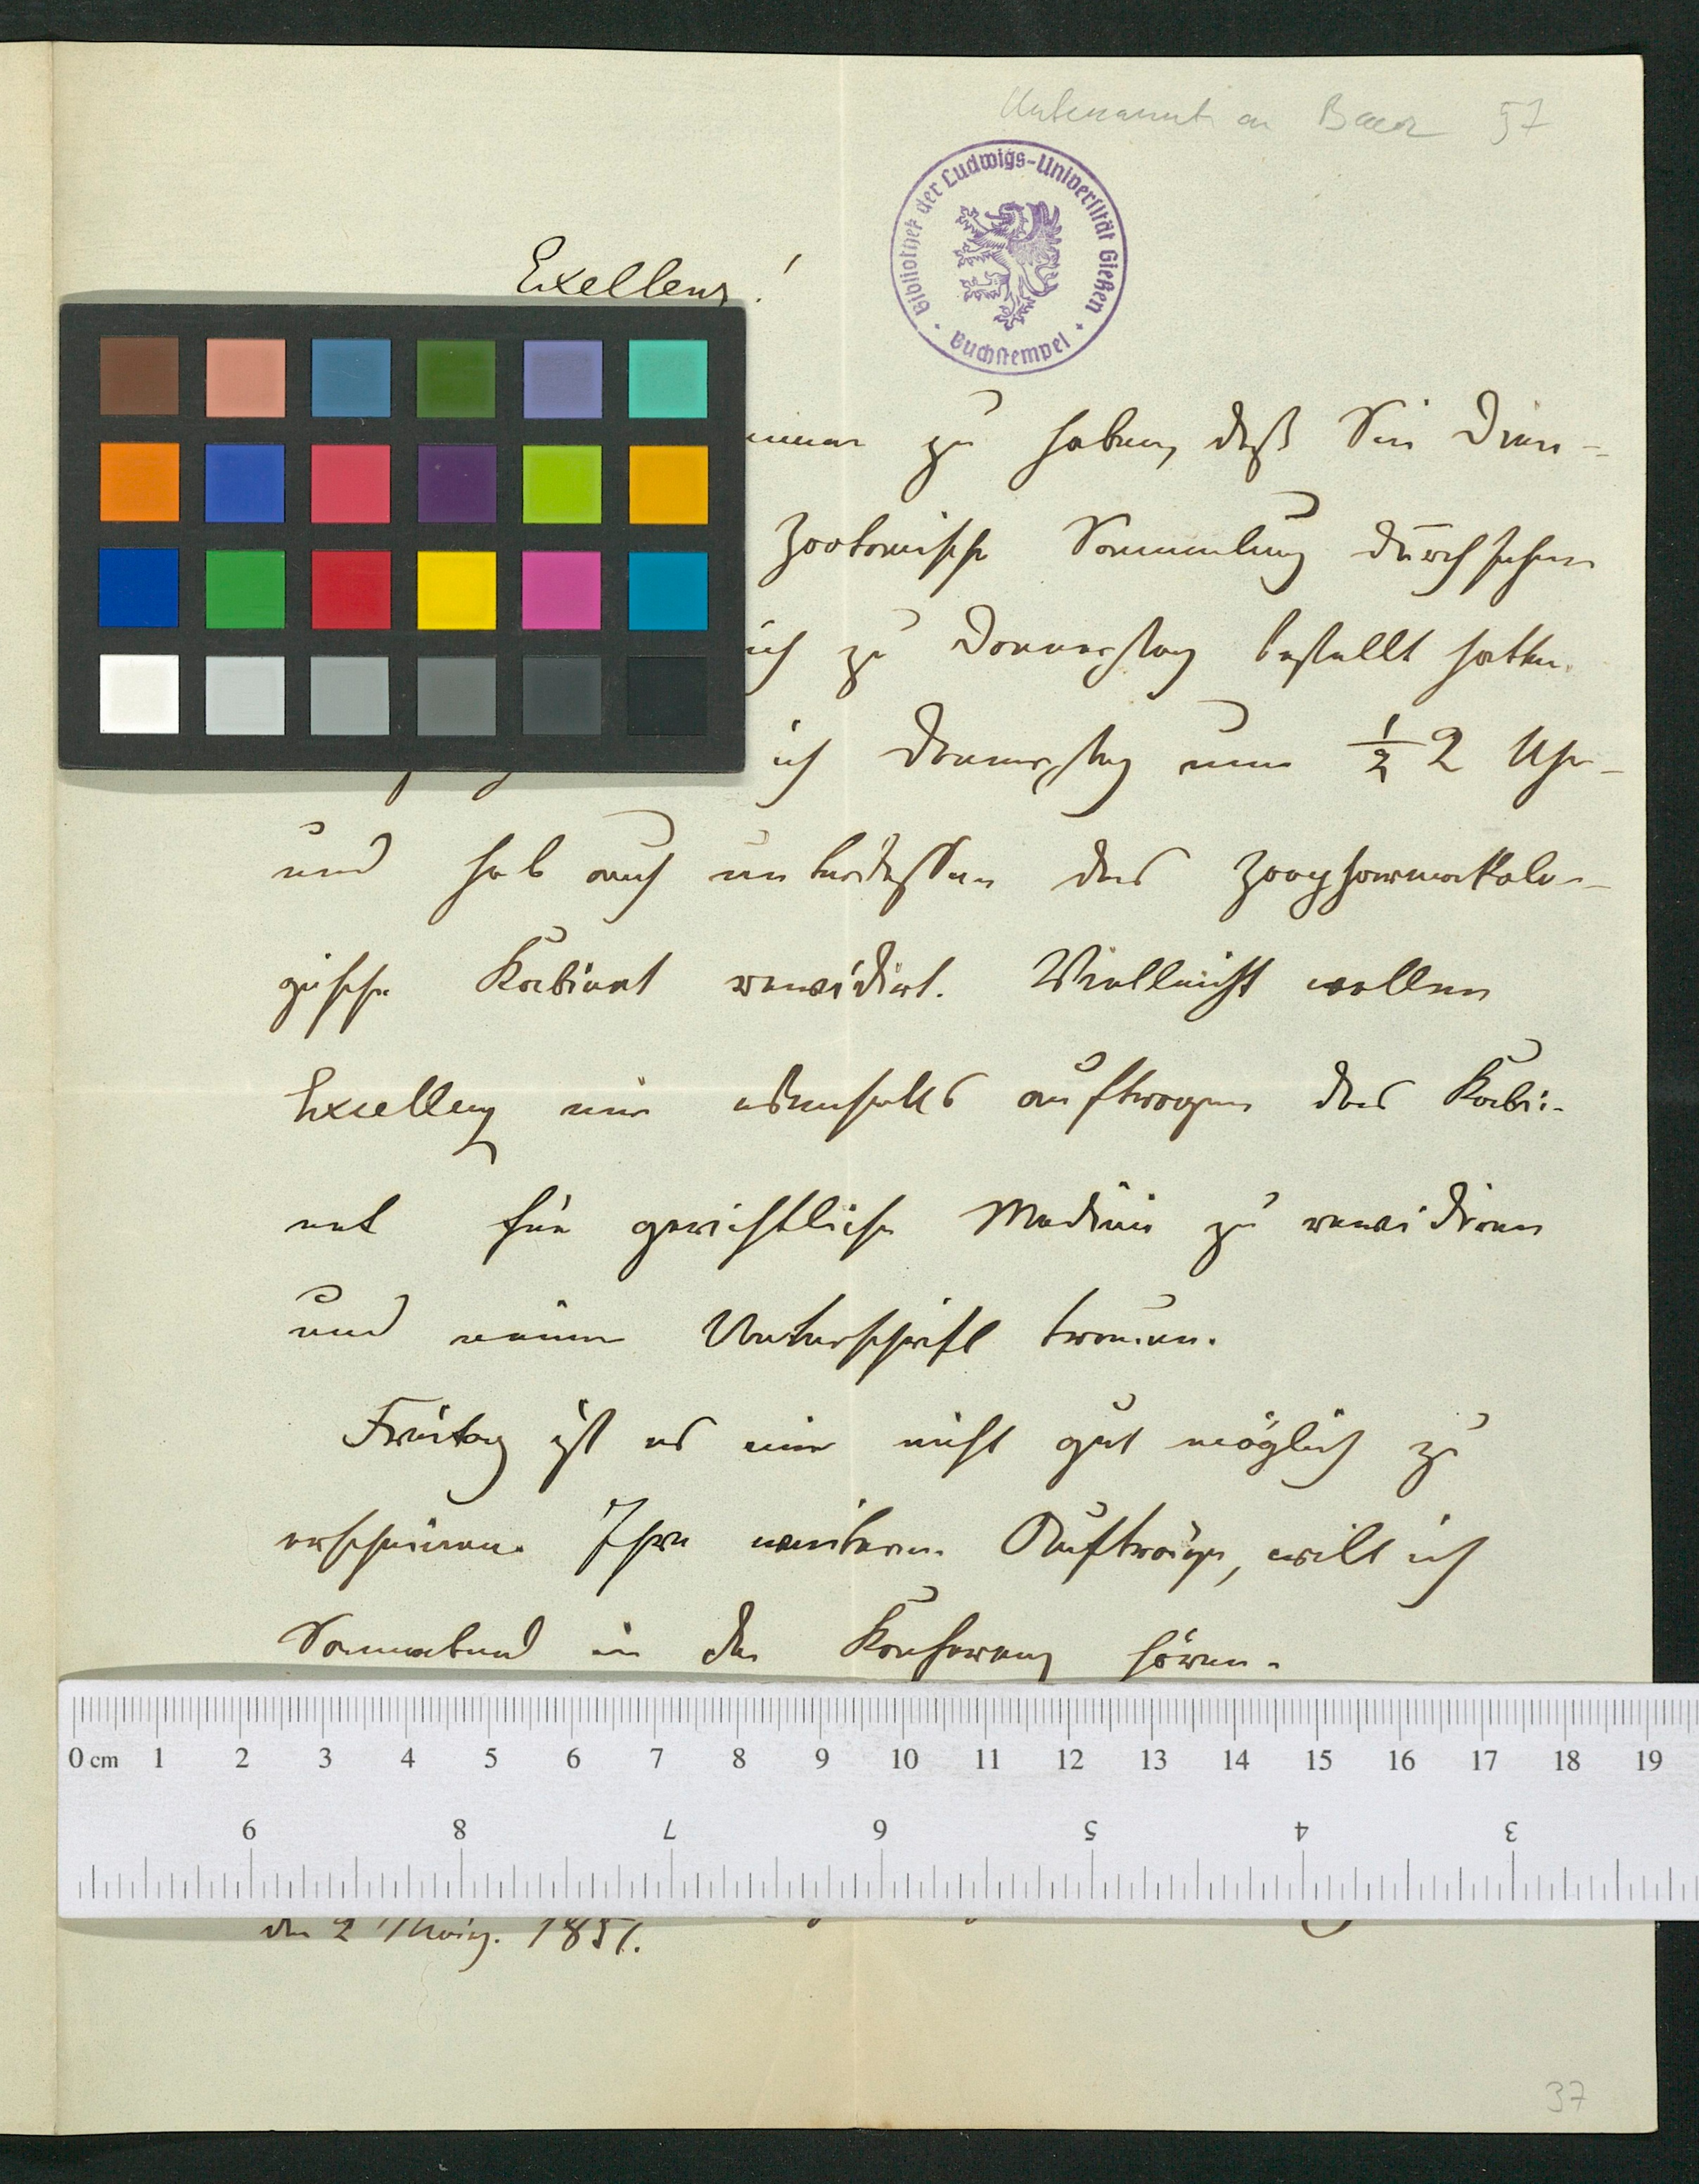 Unbenannt an Baer 57
Bibliothek der Ludwigs-Universität Gießen
Buchstempel
Exellenz!
zu haben, daß Sie Dien-
zootomische Sammlung durchsehen
ich zu Donnerstag bestellt hatten.
ich Donnerstag um ½ 2 Uhr
und hab auch unterdessen das zoopharmakolo-
gische Kabinet revidirt. Vielleicht wollen
Excellenz mir ebenfalls auftragen das Kabi-
net für gerichtliche Medicin zu revidiren
und meiner Unterschrift trauen.
Freitag ist es mir nicht gut möglich zu
erscheinen. Ihre weiteren Aufträge, will ich
Sonnabend in der Konferenz hören.
0 cm 1 2 3 4 5 6 7 8 9 10 11 12 13 14 15 16 17 18 19
9 8 7 6 5 4 3
den 2 März. 1851.
37